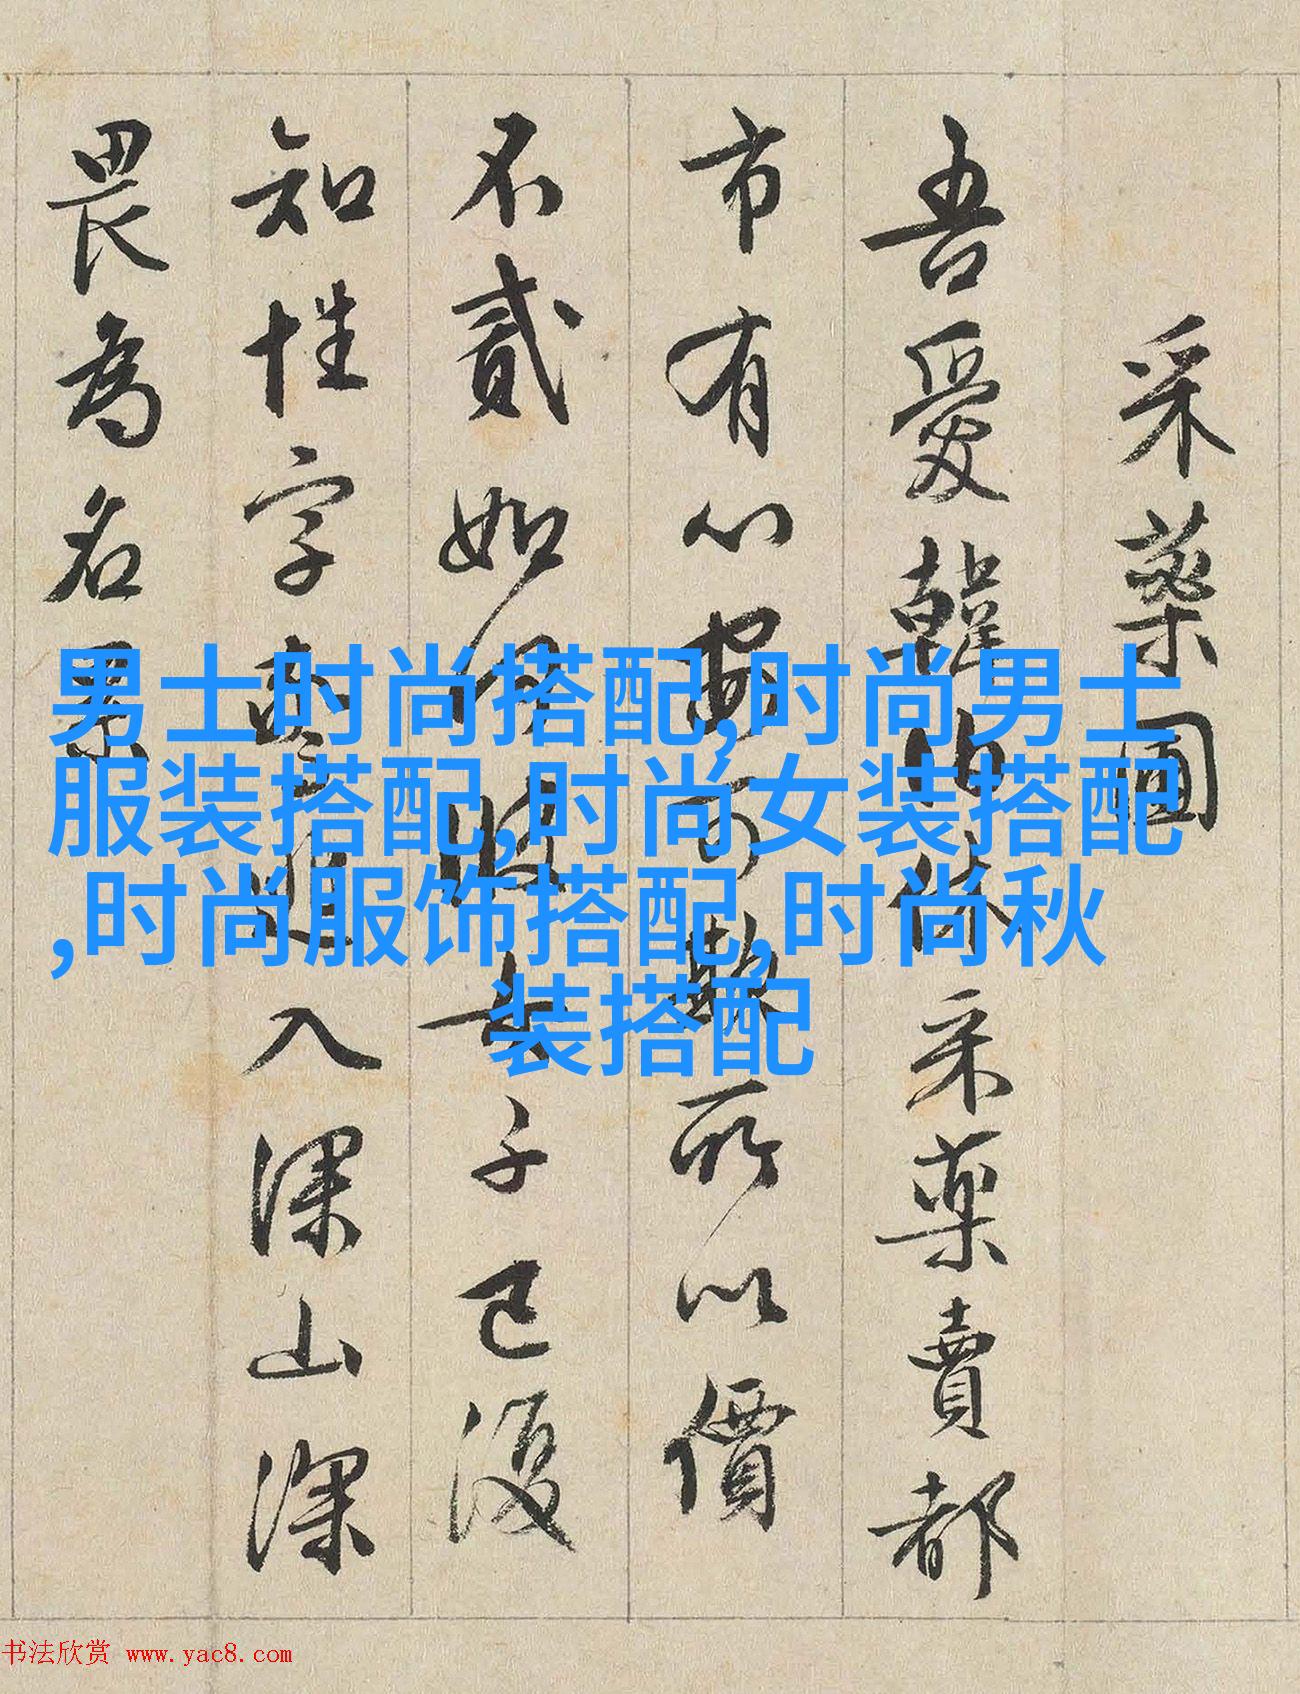 采藥圖
吾愛韓伯休采藥賣都
市有心安可欺所以價
不貳如何彼女子已復
知性字入深山深
畏為名累
男士时尚搭配,时尚男士
服装搭配,时尚女装搭配
,时尚服饰搭配,时尚秋
装搭配
书法欣赏 www.yac8.com